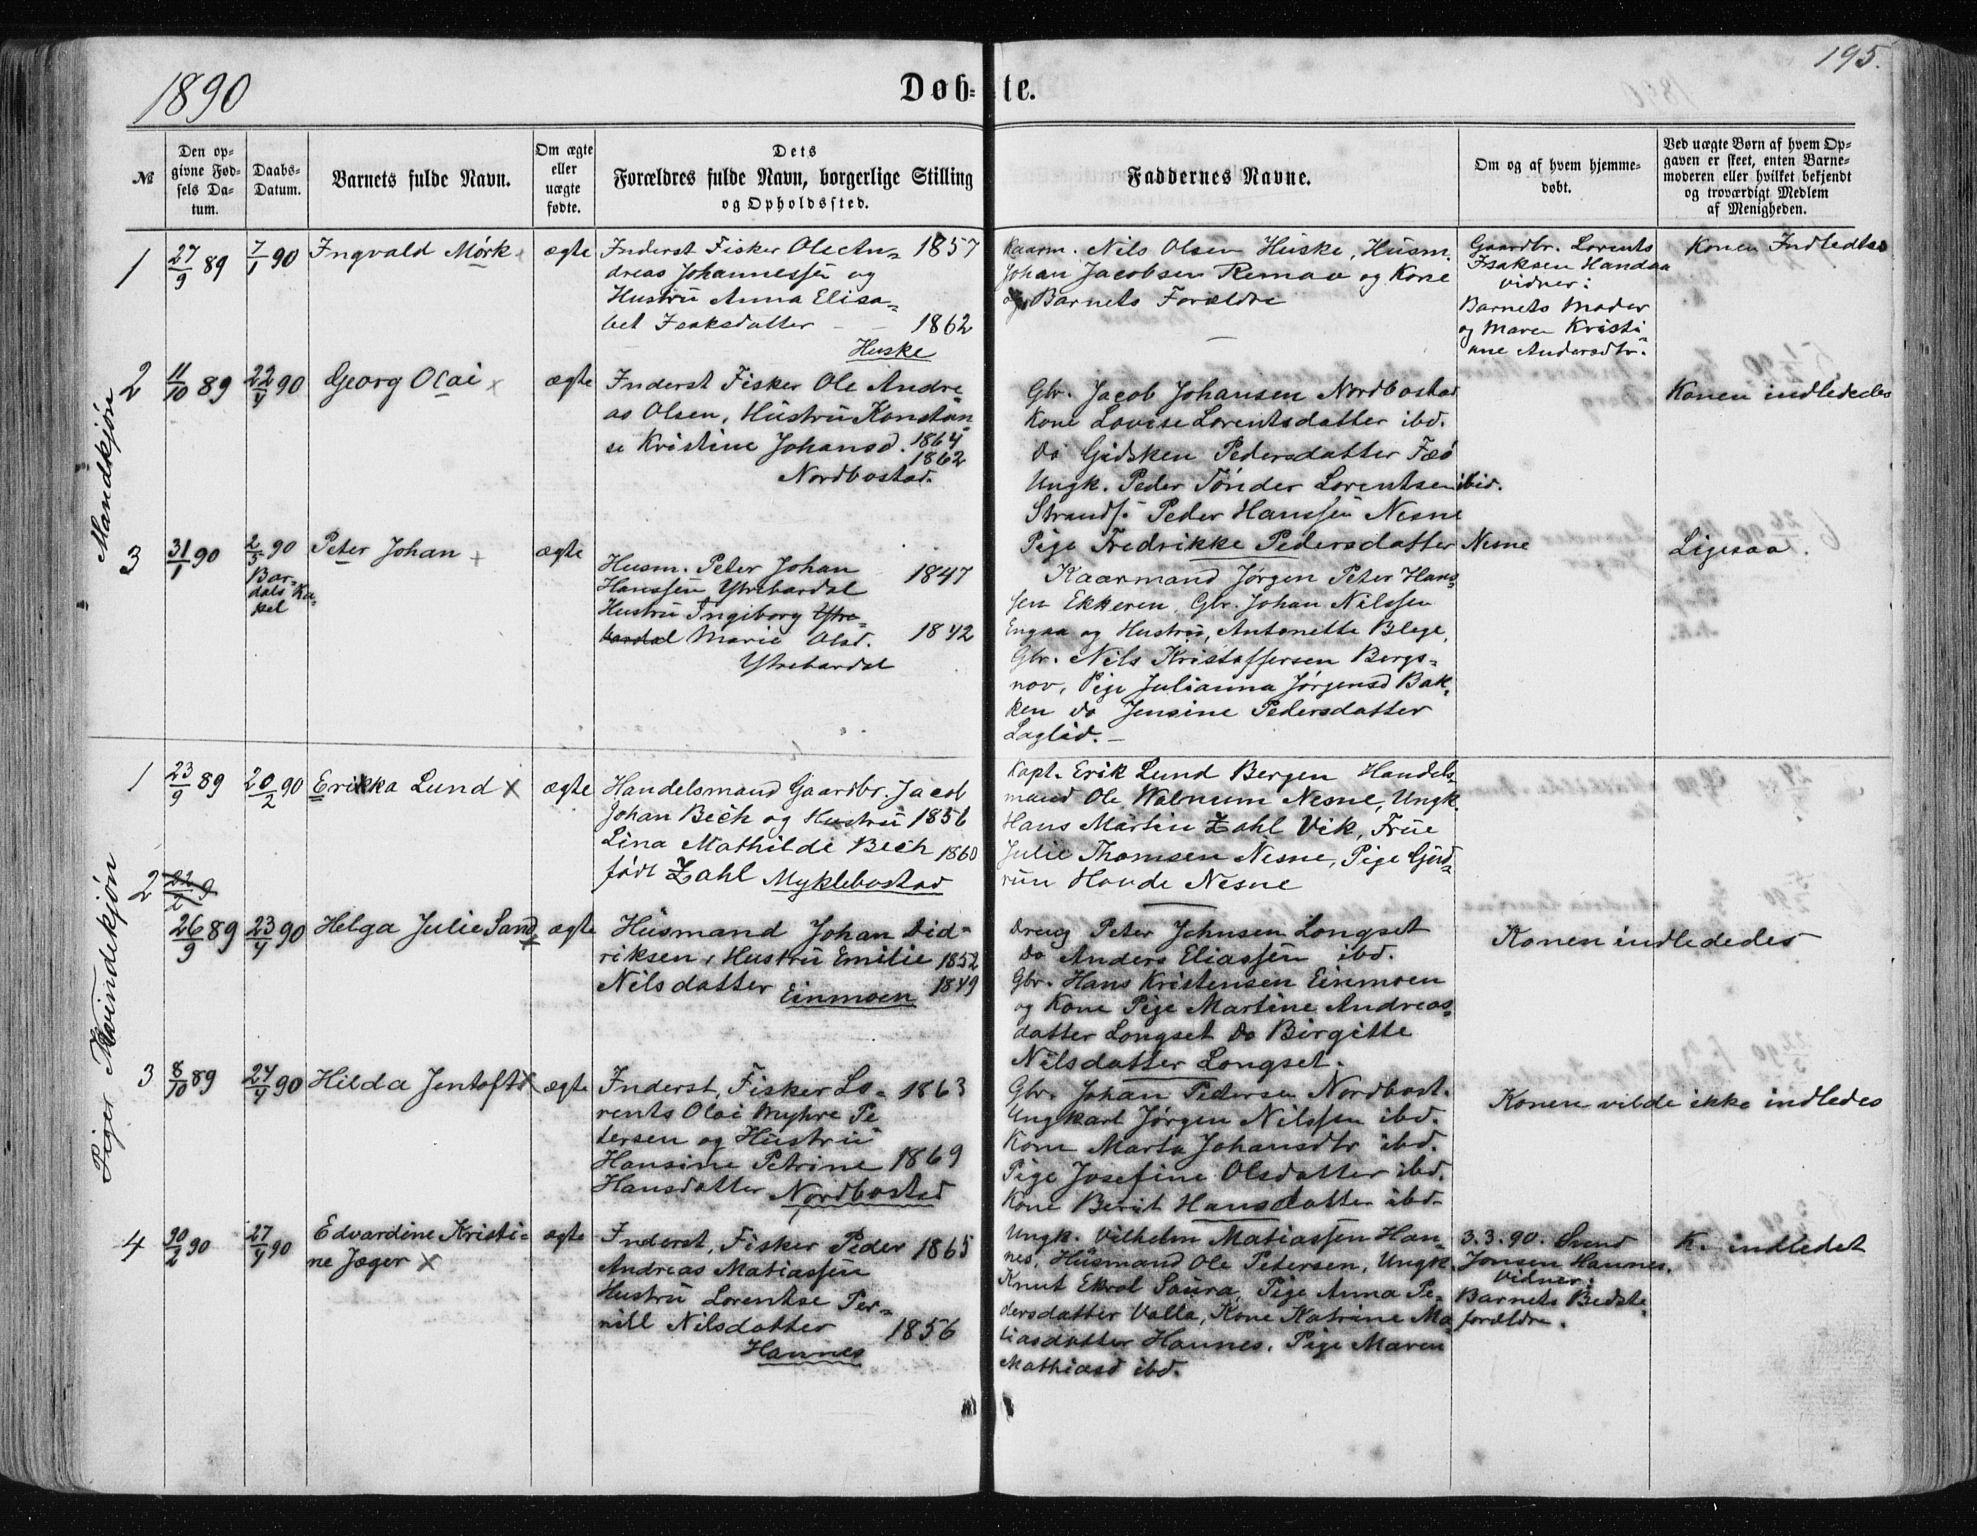 1890
Døb-te.
195.
№
Den op-
givne Fød-
sels Da-
tum.
Daabs-
Datum.
Barnets fulde Navn.
Om ægte
eller
uægte
fødte.
Dets
Forældres fulde Navn, borgerlige Stilling
og Opholdssted.
Faddernes Navne.
Om og af hvem hjemme-
døbt.
Ved uægte Børn af hvem Op-
gaven er skeet, enten Barne-
moderen eller hvilket bekjendt
og troværdigt Medlem
af Menigheden.
Mandkjøn
1
27/9 89
7/1 90
Ingvald Mørk
ægte
Inderst Fisker Ole An= 1857
dreas Johannessen og
Hustru Anna Elisa=
bet Isaksdatter - - 1862
Huske
Kaarm. Nils Olsen Huske, Husm.
Johan Jacobsen Remao og Kone
og Barnets Forældre
Gaardbr. Lorents
Isaksen Handaa
vidner:
Barnets Moder
og Maren Kristi
ane Andersdtr.
Konen Indledtes
2
11/10 89
22/4 90
Georg Olai x
ægte
Inderst Fisker Ole Andre
as Olsen, Hustru Konstan
se Kristine Johansd. 1864
1862
Nordbostad.
Gbr. Jacob Johansen Nordbostad
Kone Lovise Lorentsdatter ibd.
do Gidsken Pedersdatter Fæø
Ungk. Peder Tønder Lorentsen ibid.
Strands. Peder Hanssen Nesne
Pige Fredrikke Pedersdatter Nesne
Konen indledes
3
31/1 90
2/5 90
Bar-
dals Ka-
pel
Peter Johan +
ægte
Husm. Peter Johan
Hanssen Ytrebardal 1847
Hustru Ingiborg Ytre-
bardal Marie Olsd. 1842
Ytrebardal
Kaarmand Jørgen Peter Hans-
sen Ekkeren, Gbr. Johan Nilssen
Engaa og Hustru, Antonette Blege,
Gbr. Nils Kristoffersen Bergs=
nov, Pige Julianna Jørgensd Bak-
ken do Jensine Pedersdatter
Laglid. -
Ligesaa.
Piger Kvindekjøn
1
23/9 89
20/2 90
Erikka Lund x
ægte
Handelsmand Gaardbr. Jacob
Johan Bech og Hustru 1856
Lina Mathilde Bech 1860
født Zahl Myklebostad
Kapt. Erik Lund Bergen Handels-
mand Ole Walnum Nesne, Ungk.
Hans Martin Zahl Vik, Frue
Julie Thomsen Nesne, Pige Gud-
run Hovde Nesne
2
26/9 89
23/4 90
Helga Julie Sand +
ægte
Husmand Johan Did=
riksen, Hustru Emilie 1852
Nilsdatter Einmoen 1849
Dreng Peter Johnsen Longset
Do Anders Eliassen ibd.
Gbr. Hans Kristensen Einmoen
og Kone Pige Martine Andreas-
datter Longset do Birgitte
Nilsdatter Longset.
Konen indlededes
3
8/10 89
27/4 90
Hilda Jentoft x
ægte
Inderst, Fisker Lo- 1863
rents Olai Myhre Pe
tersen og Hustru
Hansine Petrine 1869
Hansdatter Nordbostad
Gbr. Johan Pedersen Nordbost.
Ungkarl Jørgen Nilssen ibd.
Kone Marta Johansdtr ibd.
Pige Josefine Olsdatter ibd.
Kone Berit Hansdatter ibd.
Konen vilde ikke indledes
4
20/2 90
27/4 90
Edvardine Kristi=
ne Jæger x
ægte
Inderst, Fisker Peder 1865
Andreas Matiassen
Hustru Lorentse Per=
nill Nilsdatter 1856
Hannes
Ungk. Vilhelm Matiassen Han-
nes, Husmand Ole Petersen, Ungk.
Knut Ekrol Saura, Pige Anna Pe-
dersdatter Valla, Kone Katrine Ma
tiasdatter Hannes, Pige Maren
Mathiasd ibd.
3.3.90. Svend
Jonsen Hannes.
Vidner:
Barnets Bedste
forældre.
K. indledet